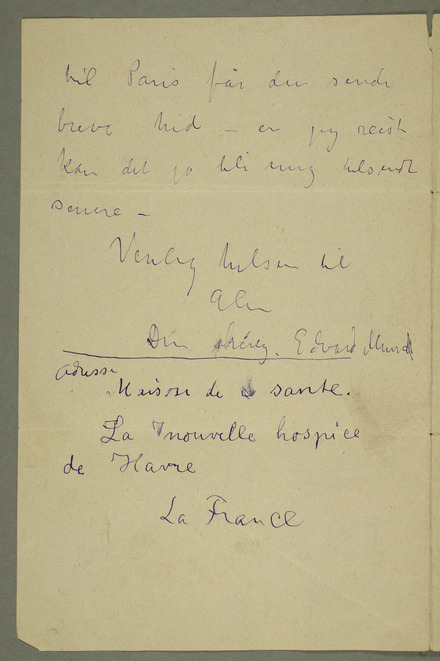 til Paris får du sende
breve hid – er jeg reist
kan det jo bli mig tilsendt
senere –
Venlig hilsen til
Alle
Din Edvard Munch
adresse
Maison de santé.
La nouvelle hospice
de Havre
La France